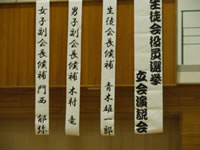 生徒会役員選挙
立会演説会
生徒会長候補 青木雄一郎
男子副会長候補 木村 竜
女子副会長候補 門西